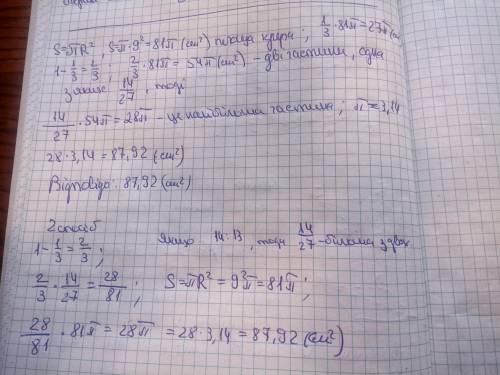 S=πR², S=π·9²=81π (см²) площа круга; 1/3·81π=27π (см
1-1/3=2/3; 2/3·81π=54π (см²) - дві частини, одна
з яких 14/27, тоді
14/27·54π=28π - це найбільша частина; π=3,14
28·3,14=87,92 (см²)
Відповідь: 87,92 (см²)
2 спосіб
1-1/3=2/3; Якщо 14:13, тоді 14/27 - більша з двох
2/3·14/27=28/81; S=πR²=9²π=81π;
28/81·81π=28π=28·3,14=87,92 (см²)